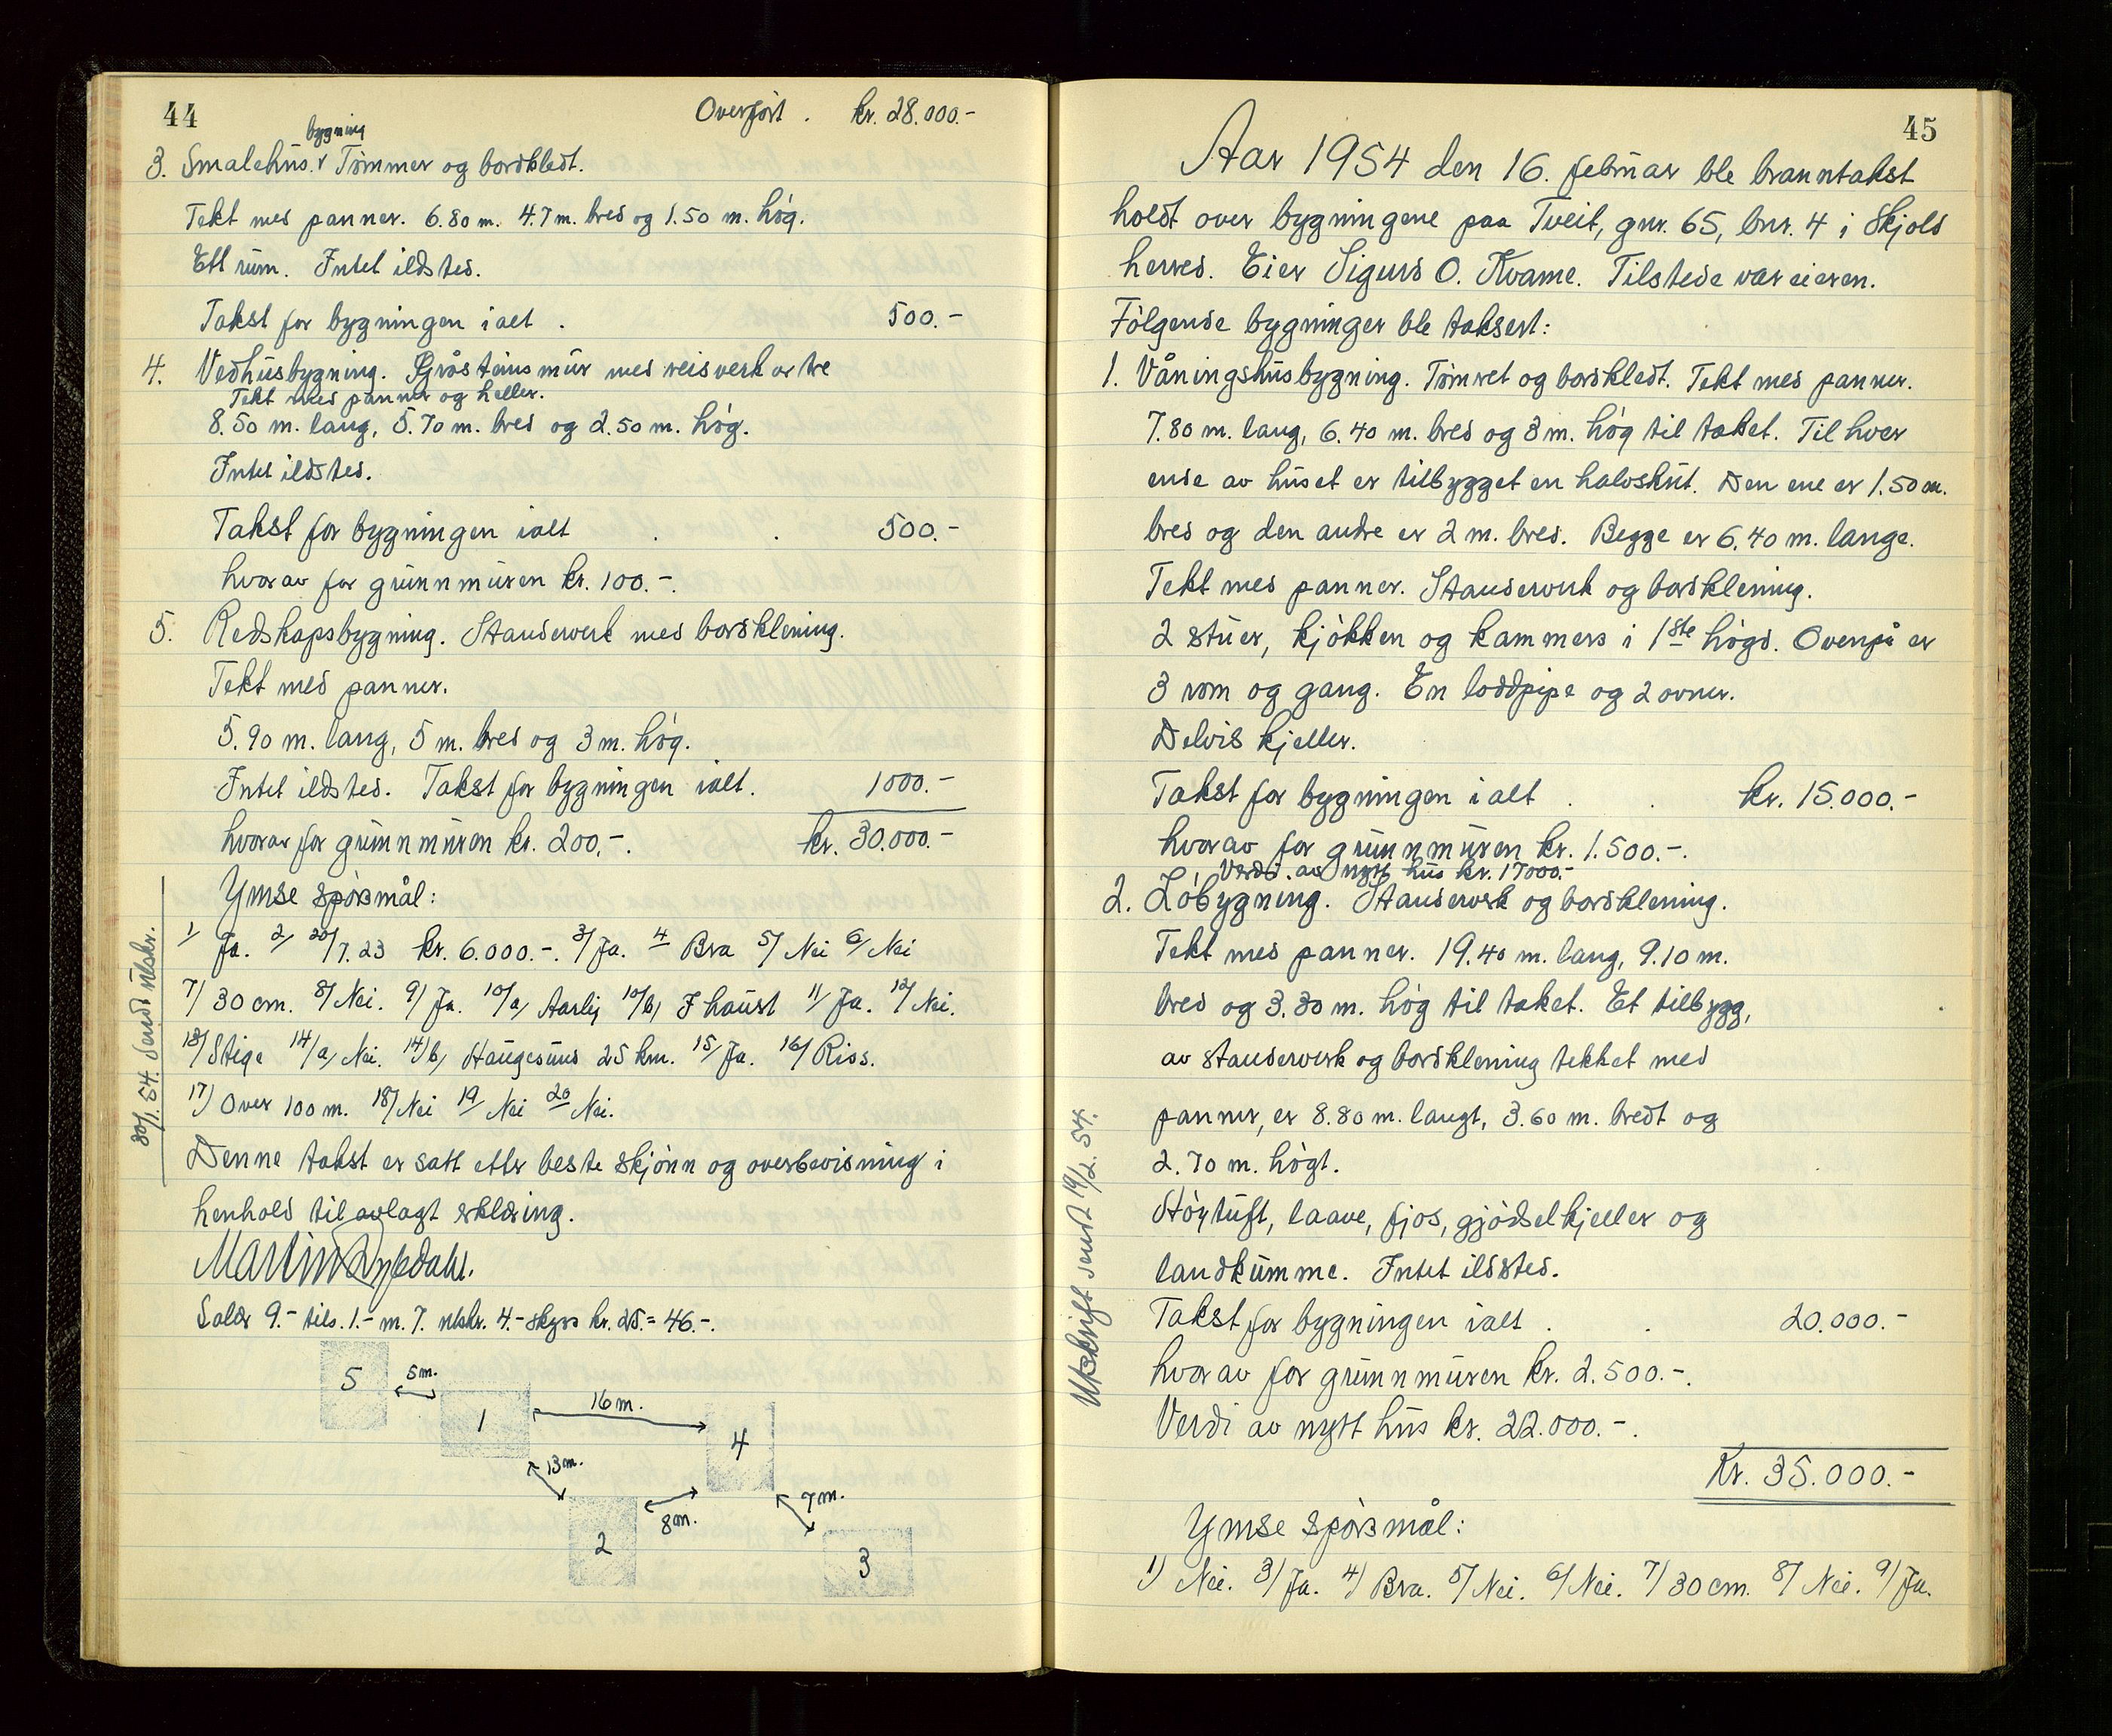 44
Overført . kr. 28.000.-
bygning
3. Smalehus. v Tømmer og bordkledt.
Tekt med panner. 6.80 m. 4.7 m. bred og 1.50 m. høg.
Ett rum. Intet ildsted.
Takst for bygningen ialt . 500.-
4. Vedhusbygning. Gråsteinsmur med reisverk av tre
Tekt med panner og heller.
8.50 m. lang, 5.70 m. bred og 2.50 m. høg.
Intet ildsted.
Takst for bygningen ialt . . 500.-
hvorav for grunnmuren kr. 100.-.
5. Redskapsbygning. Standerverk med bordkledning.
Tekt med panner.
5.90 m. lang, 5 m. bred og 3 m. høg.
Intet ildsted. Takst for bygningen ialt. 1000.-
hvorav for grunnmuren kr. 200.-. kr. 30.000.-
Ymse spørsmål:
1/ Ja. 2/ 20/7.23 kr. 6.000.-. 3/ Ja. 4 Bra 5/ Nei 6/ Nei
7/ 30 cm. 8/ Nei. 9/ Ja. 10/a, Aarlig 10/b, I haust 11/ Ja. 12/ Nei.
13/ Stige 14/a, Nei. 14/b, Haugesund 25 km. 15/ Ja. 16/ Riss.
17) Over 100 m. 18/ Nei 19 Nei 20 Nei.
30/1.54. Sendt utskr.
Denne takst er satt etter beste skjønn og overbevisning i
henhold til avlagt erklæring.
Martin
Salær 9.- tils. 1.- m. 7. utskr. 4.- skyss kr. 25.= 46.-.
5
5m.
1
16 m.
4
13 m.
8 m.
7 m.
2
3
45
Aar 1954 den 16. februar ble branntakst
holdt over bygningene paa Tveit, gnr. 65, bnr. 4 i Skjold
herred. Eier Sigurd O. Kvame. Tilstede var eieren.
Følgende bygninger ble taksert:
1. Våningshusbygning. Tømret og bordkledt. Tekt med panner.
7.80 m. lang, 6.40 m. bred og 3 m. høg til taket. Til hver
ende av huset er tilbygget en halvskut. Den ene er 1.50 m.
bred og den andre er 2 m. bred. Begge er 6.40 m. lange.
Tekt med panner. Standerverk og bordkledning.
2 stuer, kjøkken og kammers i 1ste høgd. Ovenpå er
3 rom og gang. En loddpipe og 2 ovner.
Delvis kjeller.
Takst for bygningen ialt . . kr. 15.000.-
hvorav for grunnmuren kr. 1.500.-.
Verdi av nytt hus kr. 17000.-
2. Løbygning. Standerverk og bordkledning.
Tekt med panner. 19.40 m. lang, 9.10 m.
bred og 3.30 m. høg til taket. Et tilbygg,
av standerverk og bordkledning tekket med
panner, er 8.80 m. langt, 3.60 m. bredt og
2.70 m. høgt.
Høytuft, laave, fjos, gjødselkjeller og
landkumme. Intet ildsted.
Takst for bygningen ialt . . 20.000.-
hvorav for grunnmuren kr. 2.500.-.
Verdi av nytt hus kr. 22.000.-.
Kr. 35.000.-
Utskrift sendt 19/2.54.
Ymse spørsmål:
1) Nei. 3/ Ja. 4) Bra. 5/ Nei. 6/ Nei. 7/ 30 cm. 8/ Nei. 9/ Ja.